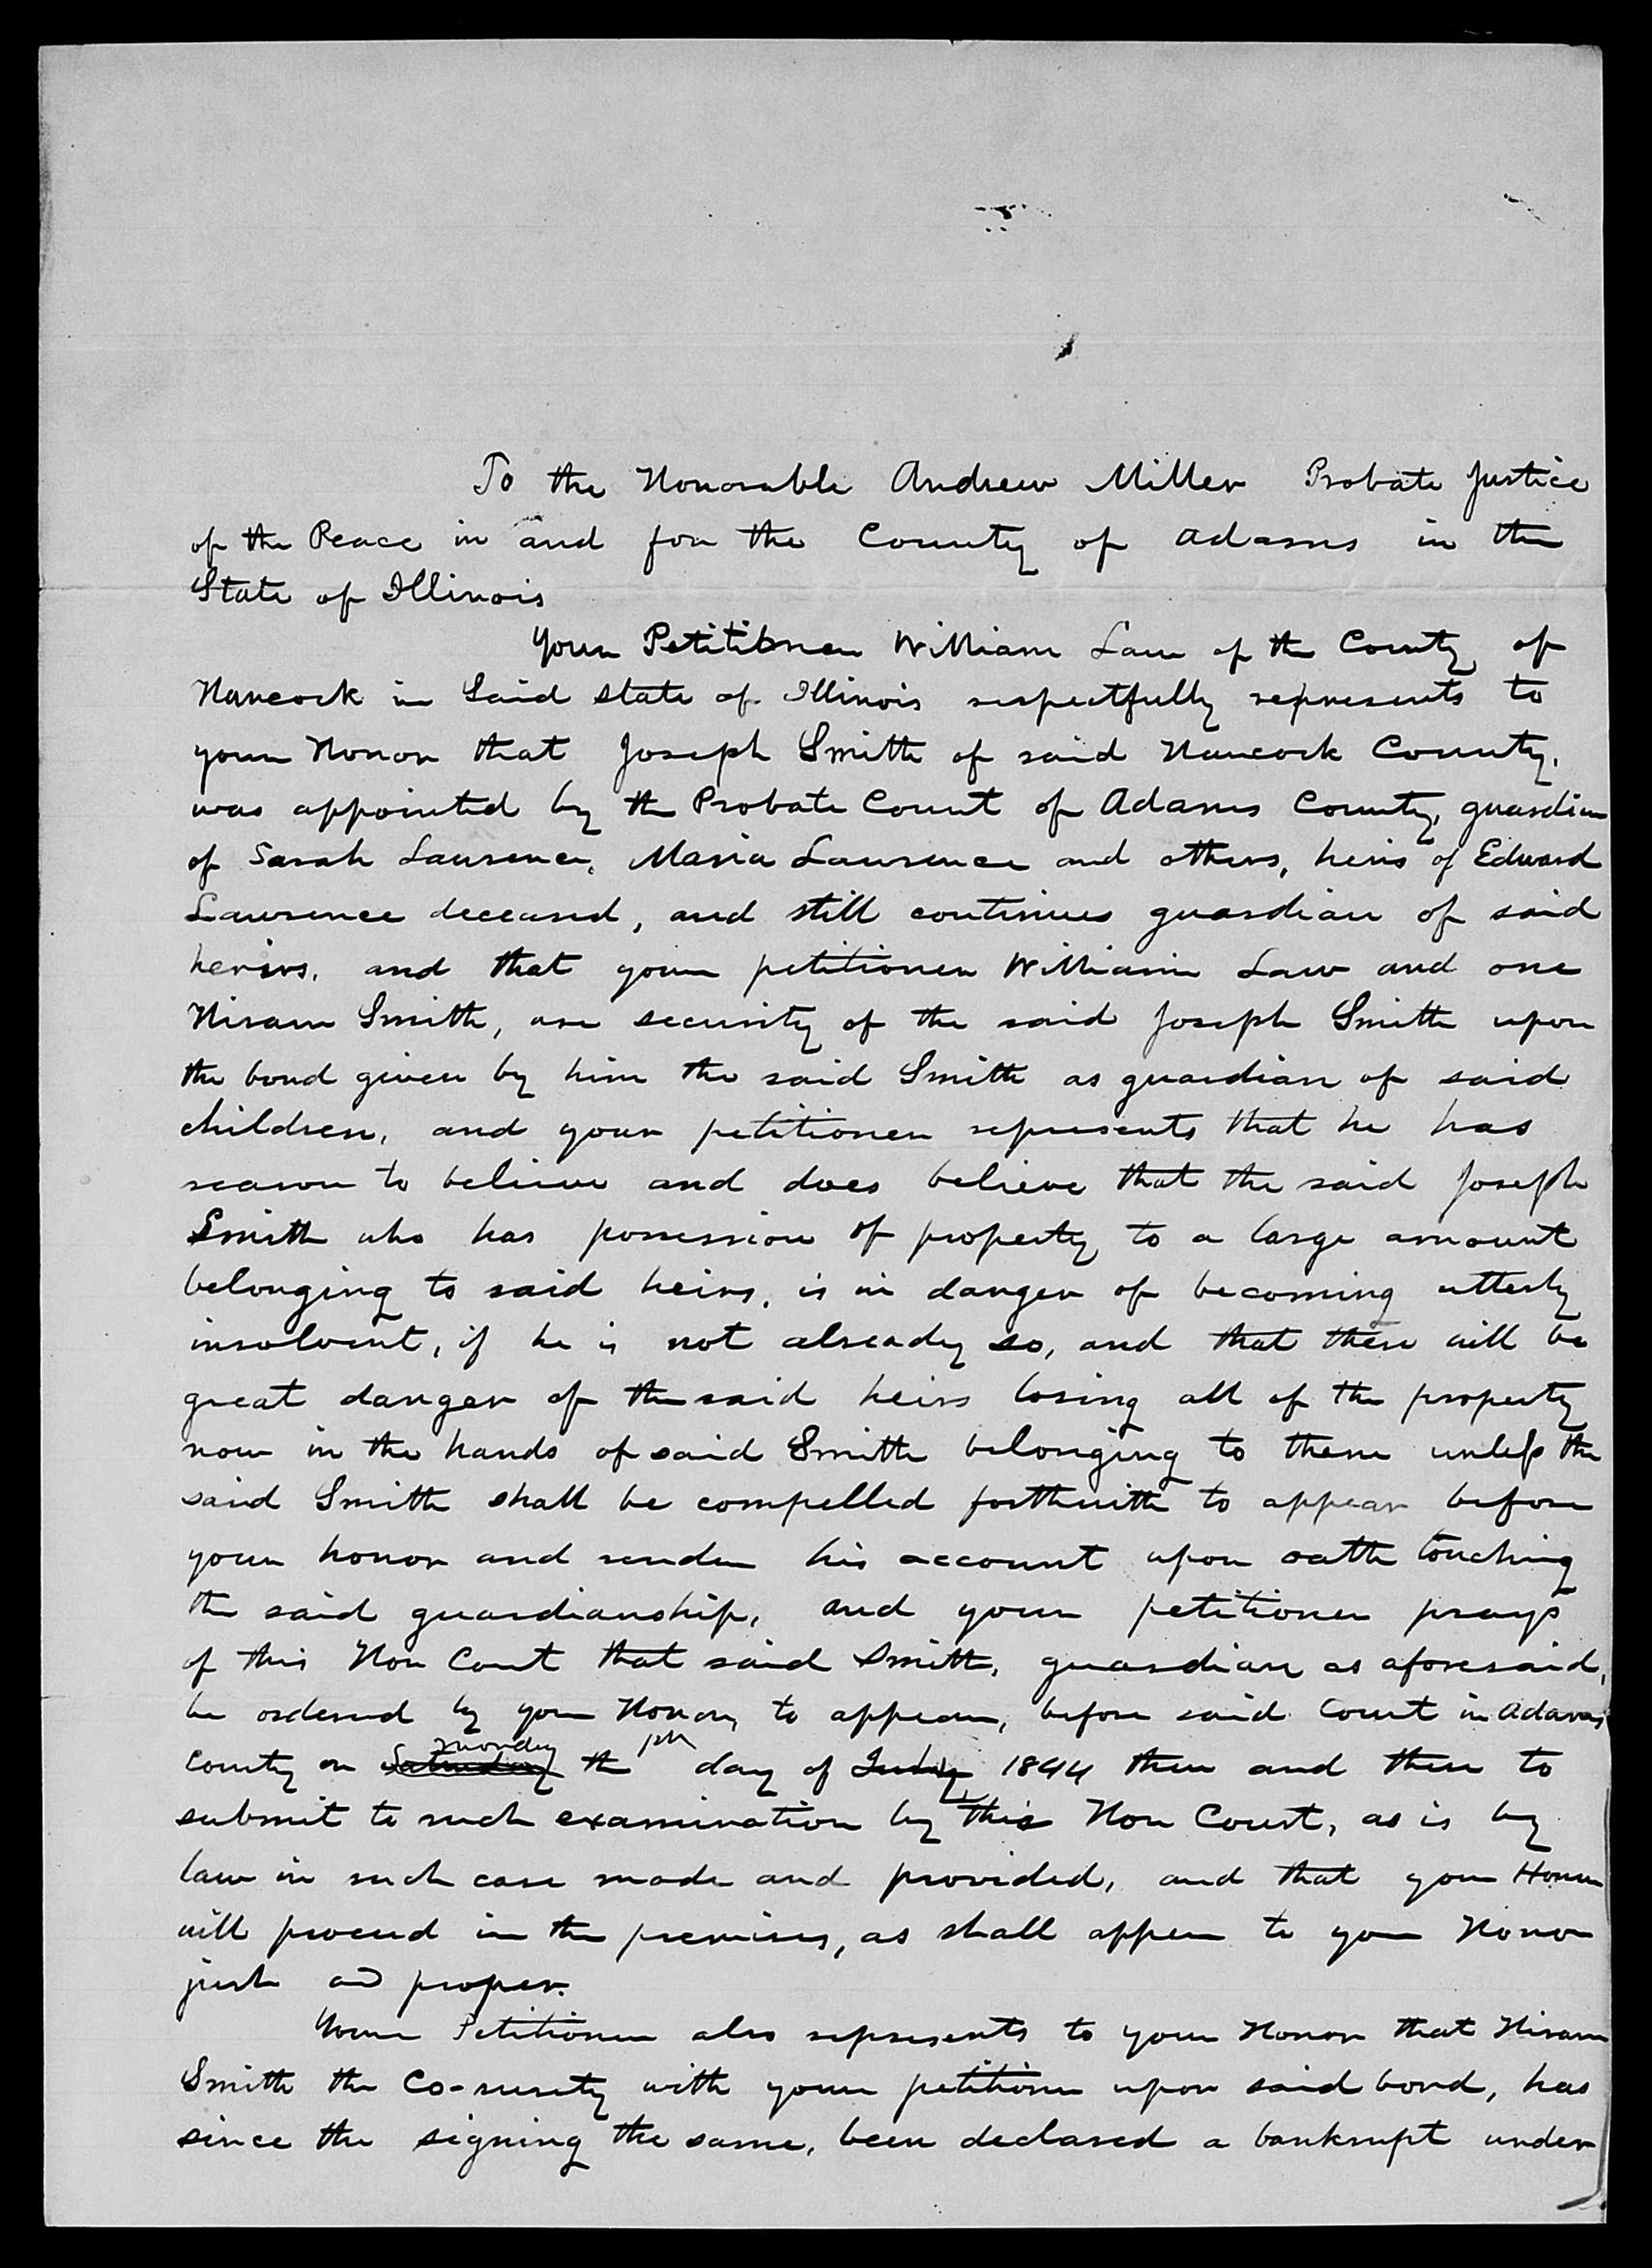 To the Honorable Andrew Miller Probate Justice
of the Peace in and for the County of Adams in the
State of Illinois
Your Petitioner William Law of the County of
Hancock in Said State of Illinois respectfully represents to
your Honor that Joseph Smith of said Hancock County,
was appointed by the Probate Court of Adams County, guardian
of Sarah Lawrence, Maria Lawrence and others, heirs of Edward
Lawrence deceased, and still continues guardian of said
heriors, and that your petitioner William Law and one
Hiram Smith, are security of the said Joseph Smith upon
the bond given by him the said Smith as guardian of said
children, and your petitioner represents that he has
reason to believe and does believe that the said Joseph
Smith who has possession of property to a large amount
belonging to said heirs, is in danger of becoming utterly
insolvent, if he is not already so, and that there will be
great danger of the said heirs losing all of the property
now in the hands of said Smith belonging to them unless the
said Smith shall be compelled forthwith to appear before
your honor and render his account upon oath touching
the said guardianship, and your petitioner prays
of this Hon Court that said Smith, guardian as aforesaid,
be ordered by your Honor, to appear, before said Court in Adams
monday
County on Saturday the day of July 1844 then and there to
submit to such examination by this Hon Court, as is by
law in such case made and provided, and that your Honor
will proceed in the premises, as shall appear to your Honor
just and proper.
Your Petitioner also represents to your Honor that Hiram
Smith the Co-surety with your petitioner upon said bond, has
since the signing the same, been declared a bankrupt under